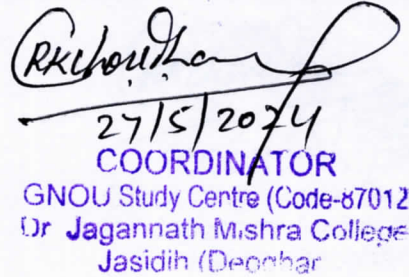 RKChoudhary
27/5/2024
COORDINATOR
GNOU Study Centre (Code-87012
Dr Jagannath Mishra College
Jasidih (Deoghar